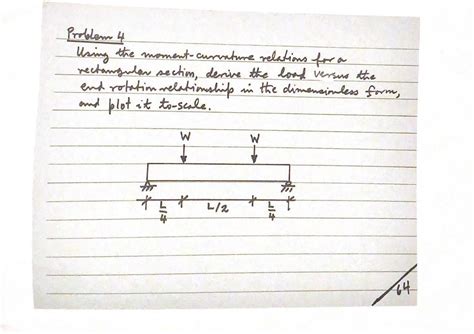 Problem 4
Using the moment-curvature relations for a
rectangular section, derive the load versus the
end rotation relationship in the dimensionless form,
and plot it to-scale.
W W
L/4 L/2 L/4
64